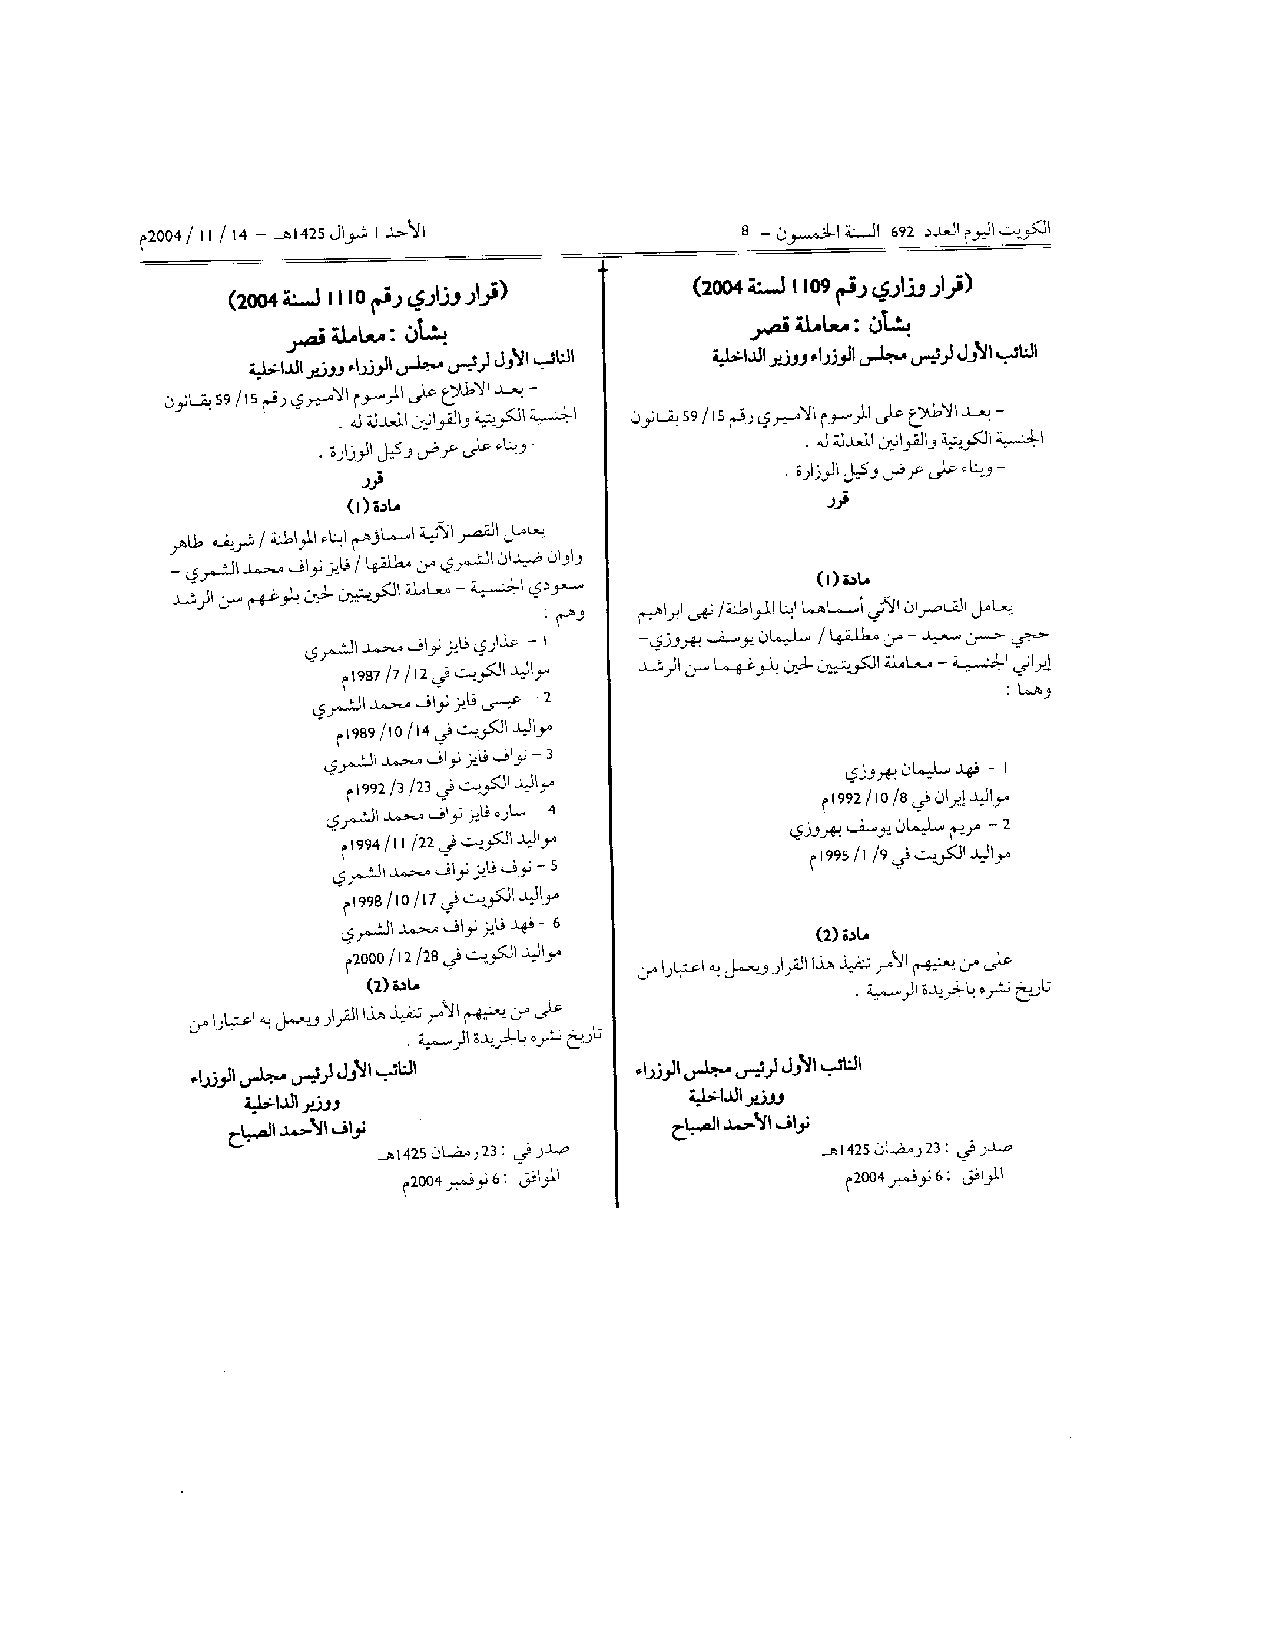 الكويت اليوم العدد 692 السنة الخمسون - 8
الأحد 1 شوال 1425هـ - 14 / 11 / 2004م
(قرار وزاري رقم 1109 لسنة 2004)
بشأن : معاملة قصر
النائب الأول لرئيس مجلس الوزراء ووزير الداخلية
- بعد الاطلاع على المرسوم الاميري رقم 15/ 59 بقانون
الجنسية الكويتية والقوانين المعدلة له .
- وبناء على عرض وكيل الوزارة .
قرر
مادة (1)
يعامل القاصران الآتي أسماهما ابنا المواطنة/ نهى ابراهيم
حجي حسن سعيد - من مطلقها / سليمان يوسف بهروزي-
إيراني الجنسية - معاملة الكويتيين لحين بلوغهما سن الرشد
وهما :
1 - فهد سليمان بهروزي
مواليد إيران في 8/ 10/ 1992م
2 - مريم سليمان يوسف بهروزي
مواليد الكويت في 9/ 1/ 1995م
مادة (2)
على من يعنيهم الأمر تنفيذ هذا القرار ويعمل به اعتبارا من
تاريخ نشره بالجريدة الرسمية .
النائب الأول لرئيس مجلس الوزراء
ووزير الداخلية
نواف الأحمد الصباح
صدر في : 23 رمضان 1425هـ
الموافق : 6 نوفمبر 2004م
(قرار وزاري رقم 1110 لسنة 2004)
بشأن : معاملة قصر
النائب الأول لرئيس مجلس الوزراء ووزير الداخلية
- بعد الاطلاع على المرسوم الاميري رقم 15/ 59 بقانون
الجنسية الكويتية والقوانين المعدلة له .
- وبناء على عرض وكيل الوزارة .
قرر
مادة (1)
يعامل القصر الآتية اسماؤهم ابناء المواطنة / شريفه طاهر
واوان ضيدان الشمري من مطلقها / فايز نواف محمد الشمري -
سعودي الجنسية - معاملة الكويتيين لحين بلوغهم سن الرشد
وهم :
1 - عذاري فايز نواف محمد الشمري
مواليد الكويت في 12/ 7/ 1987م
2 - عيسى فايز نواف محمد الشمري
مواليد الكويت في 14/ 10/ 1989م
3 - نواف فايز نواف محمد الشمري
مواليد الكويت في 23/ 3/ 1992م
4 ساره فايز نواف محمد الشمري
مواليد الكويت في 22/ 11/ 1994م
5 - نوف فايز نواف محمد الشمري
مواليد الكويت في 17/ 10/ 1998م
6 - فهد فايز نواف محمد الشمري
مواليد الكويت في 28/ 12/ 2000م
مادة (2)
على من يعنيهم الأمر تنفيذ هذا القرار ويعمل به اعتبارا من
تاريخ نشره بالجريدة الرسمية .
النائب الأول لرئيس مجلس الوزراء
ووزير الداخلية
نواف الأحمد الصباح
صدر في : 23 رمضان 1425هـ
الموافق : 6 نوفمبر 2004م